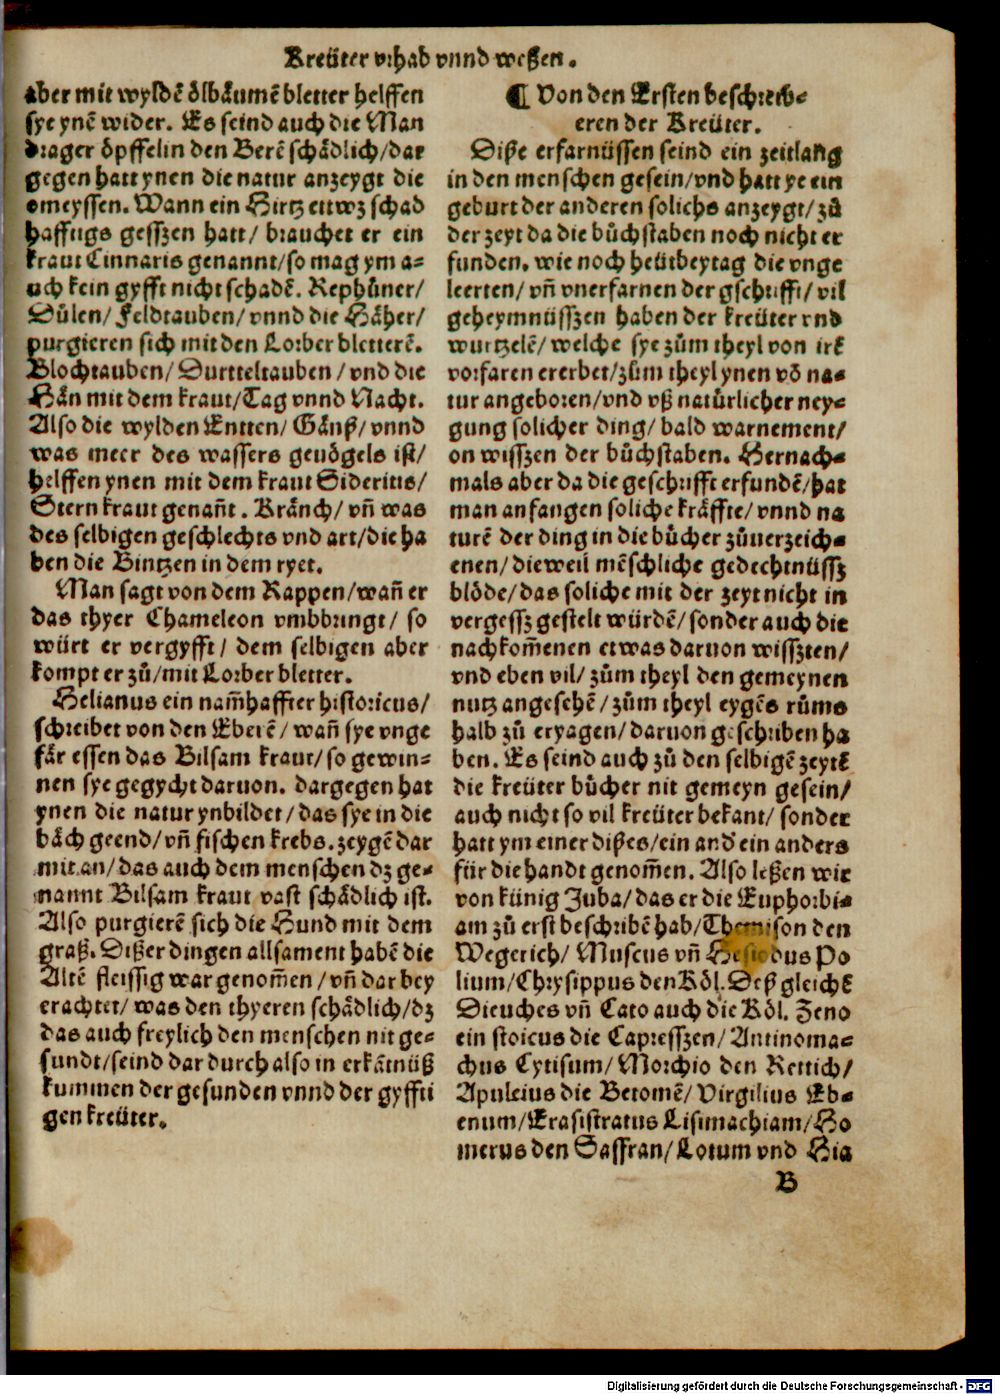 Kreüter vrhab vnnd weßen.
aber mit wyldē ölbäumē bletter helffen
sye ynē wider. Es seind auch die Man
drager öpffel in den Berē schädlich/dar
gegen hatt ynen die natur anzeygt die
omeyssen. Wann ein Hirtz ettwz schad
haffugs gesszen hatt/ brauchet er ein
kraut Cinnaris genannt/so mag ym a-
uch kein gyfft nicht schadē. Rephůner/
Důlen/ Feldtauben/ vnnd die Häher/
purgieren sich mit den Lorber bletterē.
Blochtauben/ Durtteltauben / vnd die
Hän mit dem kraut/Tag vnnd Nacht.
Also die wylden Entten/ Gänß/ vnnd
was meer des wassers gevögels ist/
helffen ynen mit dem kraut Sideritis/
Stern kraut genañt. Kränch/ vñ was
des selbigen geschlechts vnd art/die ha
ben die Bintzen in dem ryet.
Man sagt von dem Rappen/wañ er
das thyer Chameleon vmbbringt/ so
würt er vergyfft/ dem selbigen aber
kompt er zů/mit Lorber bletter.
Helianus ein nam̄haffter historicus/
schreibet von den Eberē/ wañ sye vnge
fär essen das Bilsam kraut/so gewin-
nen sye gegycht daruon. dargegen hat
ynen die natur ynbildet/das sye in die
bäch geend/vñ fischen krebs. zeygē dar
mit an/das auch dem menschen dz ge-
nannt Bilsam kraut vast schädlich ist.
Also purgierē sich die Hund mit dem
graß. Dißer dingen allsament habē die
Altē fleissig war genom̄en/ vñ dar bey
erachtet/ was den thyeren schädlich/dz
das auch freylich den menschen nit ge-
sundt/seind dar durch also in erkātnüß
kummen der gesunden vnnd der gyffti
gen kreüter.
¶ Von den Ersten beschreib-
eren der Kreüter.
Diße erfarnüssen seind ein zeitlang
in den menschen gesein/vnd hatt ye ein
geburt der anderen solichs anzeygt/zů
der zeyt da die bůchstaben noch nicht er
funden. wie noch heütbeytag die vnge
leerten/ vñ vnerfarnen der gschrifft/ vil
geheymnüsszen haben der kreüter vnd
wurtzelē/ welche sye zům theyl von irē
vorfaren ererbet/zům theyl ynen võ na-
tur angeboren/vnd vß natürlicher ney-
gung solicher ding/ bald warnement/
on wisszen der bůchstaben. Hernach-
mals aber da die geschrifft erfundē/hat
man anfangen soliche kräffte/ vnnd na
turē der ding in die bücher zůuerzeich-
enen/ dieweil mēschliche gedechtnüssz
blöde/das soliche mit der zeyt nicht in
vergessz gestelt würdē/sonder auch die
nachkom̄enen etwas daruon wisszten/
vnd eben vil/ zům theyl den gemeynen
nutz angesehē/zům theyl eygēs růms
halb zů eryagen/daruon geschriben ha
ben. Es seind auch zů den selbigē zeytē
die kreüter bücher nit gemeyn gesein/
auch nicht so vil kreüter bekant/ sonder
hatt ym einer dißes/ein and' ein anders
für die handt genom̄en. Also leßen wir
von künig Juba/das er die Euphorbi-
am zů erst beschribē hab/Themison den
Wegerich/ Museus vñ Hesiodus Po
lium/Chrysippus den Köl. Deß gleichē
Dieuches vñ Cato auch die Köl. Zeno
ein stoicus die Capresszen/ Antinoma-
chus Cytisum/ Morchio den Rettich/
Apuleius die Betomē/ Virgilius Eb-
enum/Erasistratus Lisimachiam/Ho
merus den Saffran/Lotum vnd Hia
B
Digitalisierung gefördert durch die Deutsche Forschungsgemeinschaft - DFG